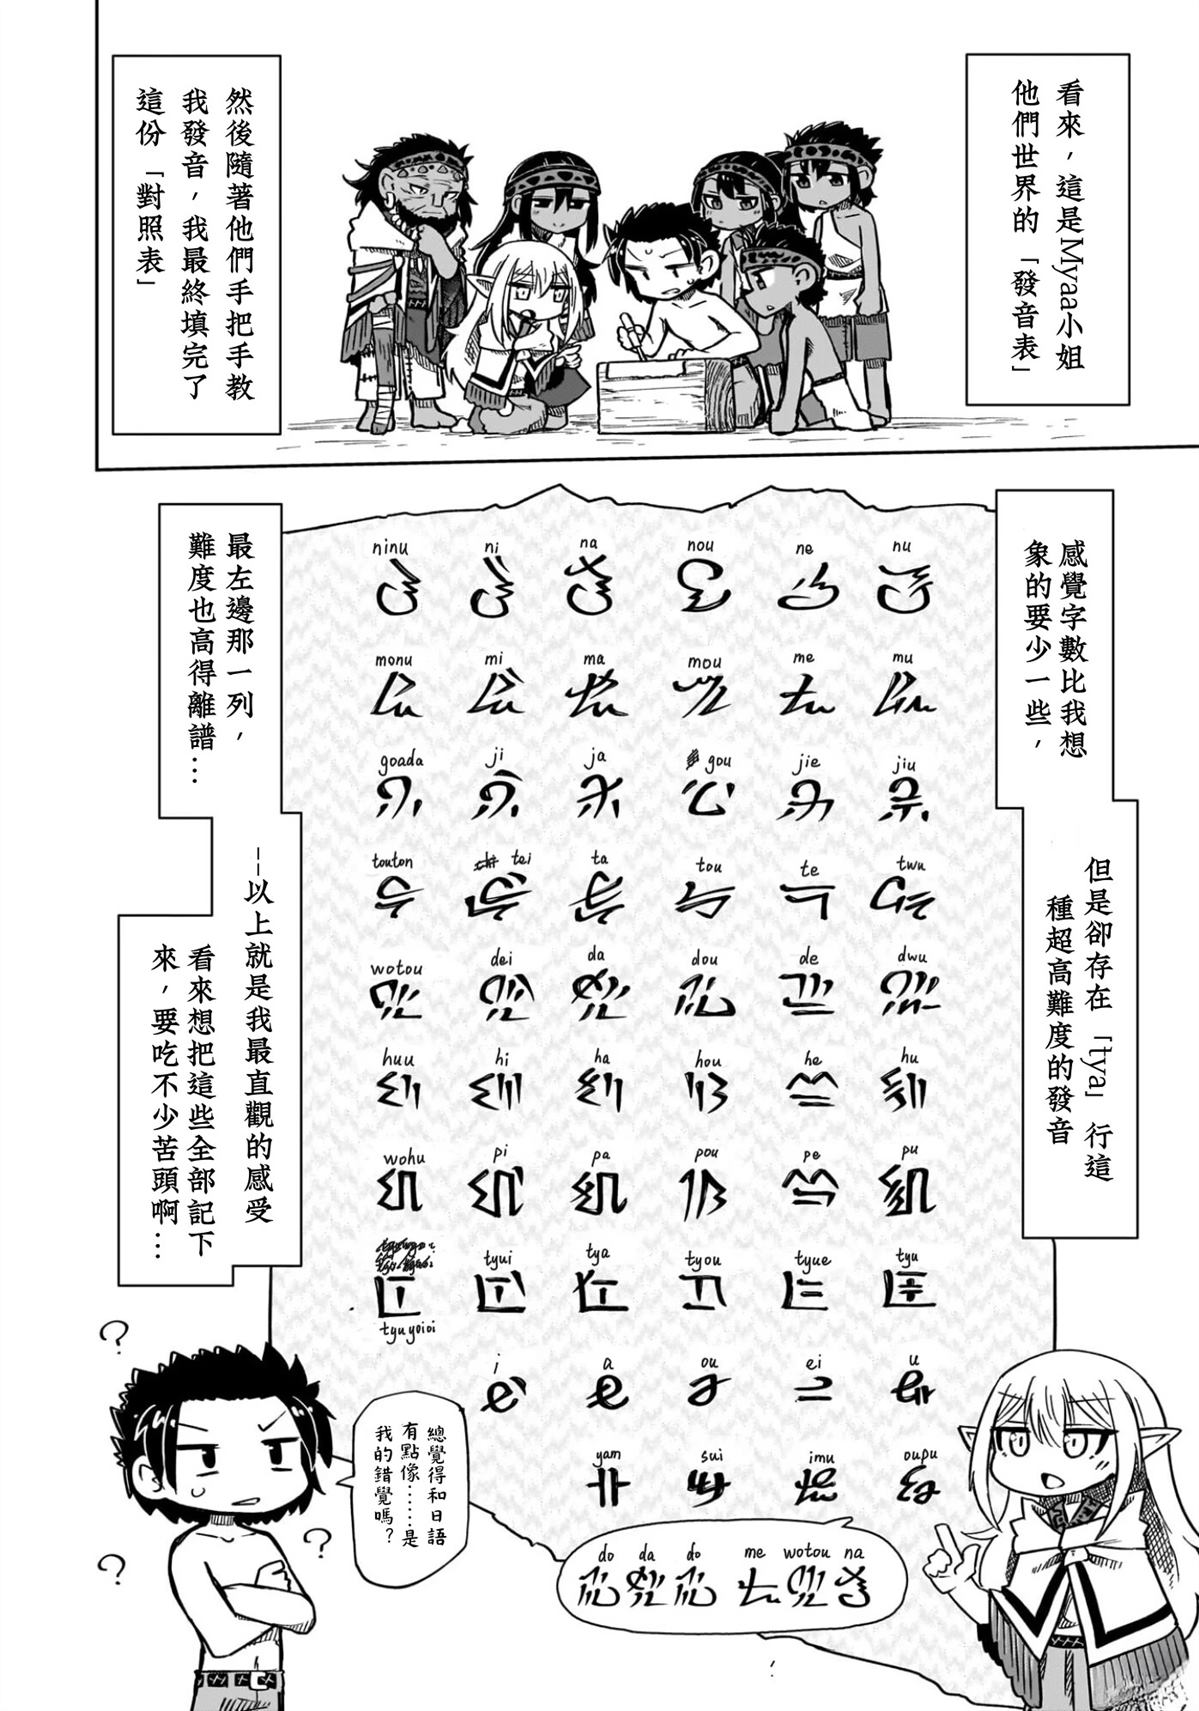 看來，這是Myaa小姐
他們世界的「發音表」
然後隨著他們手把手教
我發音，我最終填完了
這份「對照表」
感覺字數比我想
象的要少一些，
但是卻存在「tya」行這
種超高難度的發音
ninu ni na nou ne nu
monu mi ma mou me mu
goada ji ja gou jie jiu
touton tei ta tou te twu
wotou dei da dou de dwu
huu hi ha hou he hu
wohu pi pa pou pe pu
tyui tya tyou tyue tyu
tyuyoioi
i a ou ei u
yam sui imu oupu
最左邊那一列，
難度也高得離譜…
--以上就是我最直觀的感受
看來想把這些全部記下
來，要吃不少苦頭啊…
do da do me wotou na
總覺得和日語
有點像……是
我的錯覺嗎？
？
？
？